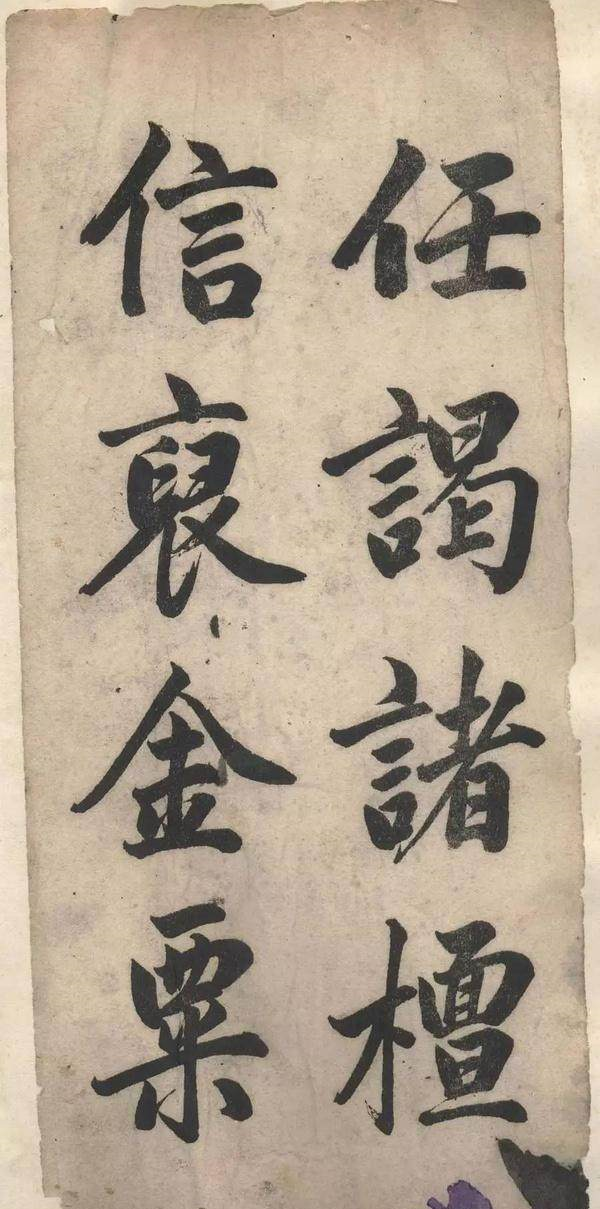 任謁諸檀
信裒金粟